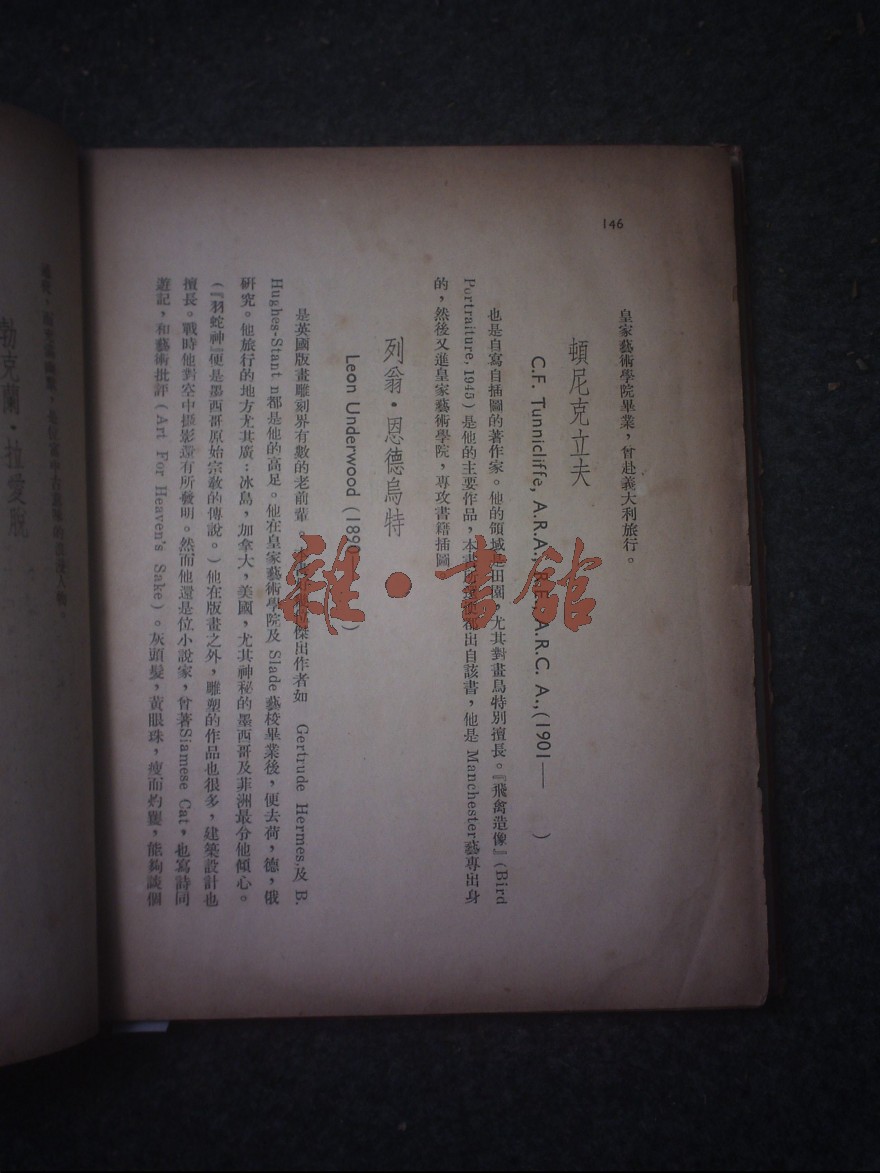 146
皇家藝術學院畢業,曾赴義大利旅行。
頓尼克立夫
C.F. Tunnicliffe, A.R.A., R.E., A.R.C. A.,(1901— )
也是自寫自插圖的著作家。他的領域是田園,尤其對畫鳥特別擅長。『飛禽造像』(Bird
Portraiture, 1945)是他的主要作品,本書所選便都出自該書,他是 Manchester藝專出身
的,然後又進皇家藝術學院,專攻書籍插圖
列翁・恩德烏特
Leon Underwood (1890 )
是英國版畫雕刻界有數的老前輩。傑出作者如 Gertrude Hermes,及 B.
Hughes-Stant n都是他的高足。他在皇家藝術學院及 Slade藝校畢業後,便去荷,德,俄
研究。他旅行的地方尤其廣:冰島,加拿大,美國,尤其神秘的墨西哥及非洲最分他傾心。
(『羽蛇神』便是墨西哥原始宗教的傳說。)他在版畫之外,雕塑的作品也很多,建築設計也
擅長。戰時他對空中攝影還有所發明。然而他還是位小說家,曾著Siamese Cat,也寫詩同
遊記,和藝術批評(Art For Heaven's Sake)。灰頭髮,黃眼珠,瘦而灼矍,能夠談個
勃克蘭・拉愛脫
雜・書館